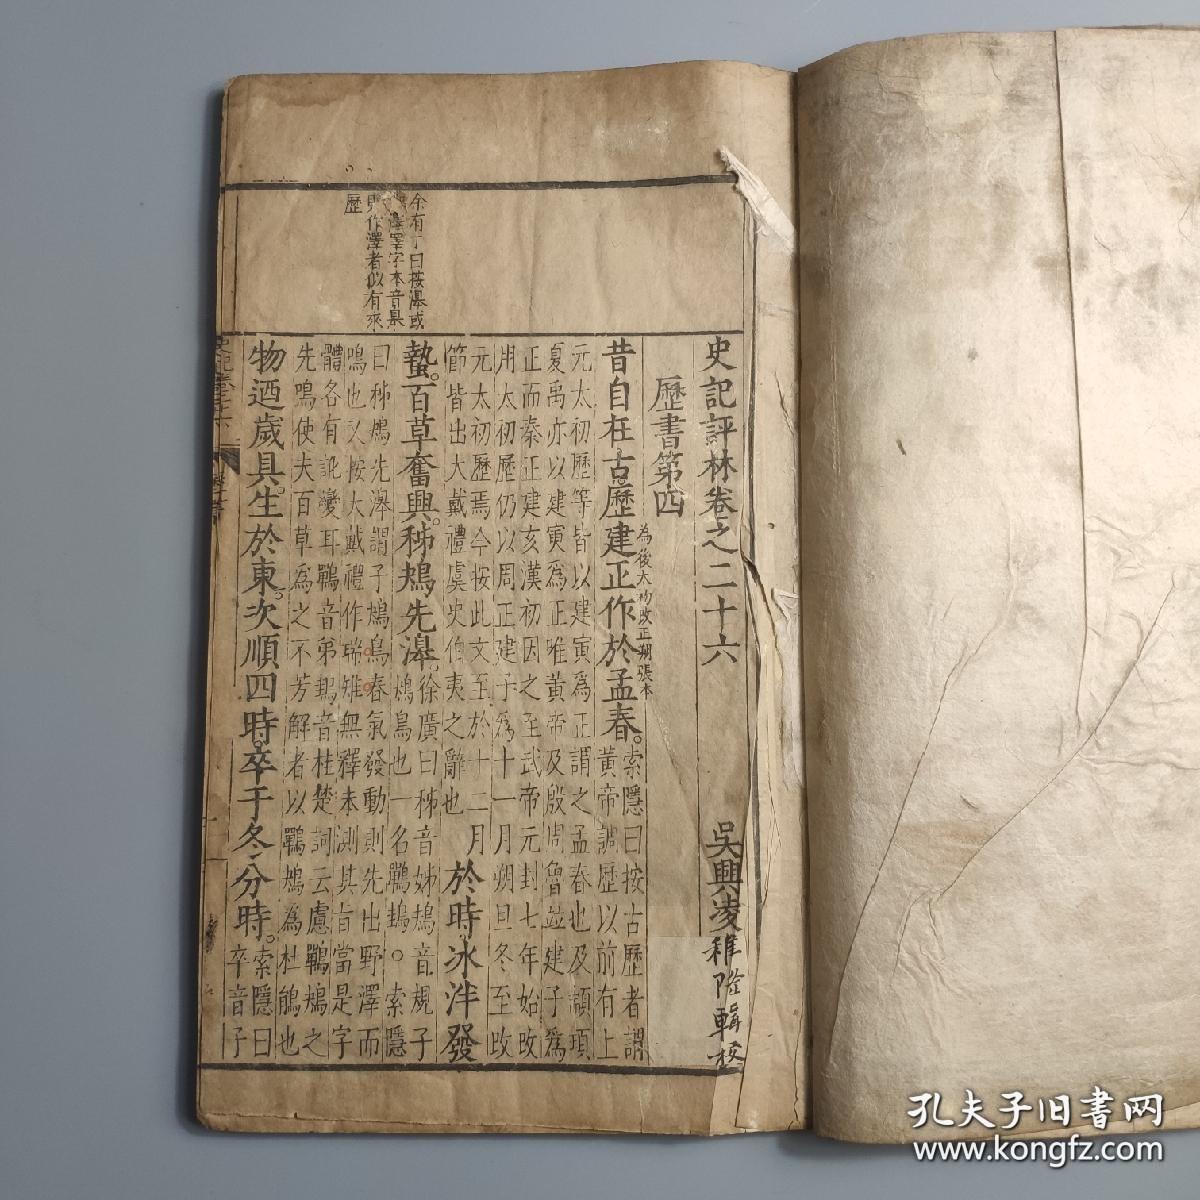 史記評林卷之二十六
吳興凌稚隆輯校
歷書第四
為後太初改正朔張本
昔自在古歷建正作於孟春。索隱曰按古歷者謂
黃帝調歷以前有上
元太初歷等皆以建寅為正謂之孟春也及顓頊
夏禹亦以建寅為正唯黃帝及殷周魯並建子為
正而秦正建亥漢初因之至武帝元封七年始改
用太初歷仍以周正建子為十一月朔旦冬至改
元太初歷焉今按此文至於十二月
節皆出大戴禮虞史伯夷之辭也
於時冰泮發
蟄。百草奮興。秭鳺先滜。徐廣曰秭音姊鳺音規子
鳺鳥也一名鷤鴂。索隱
曰秭鳺先滜謂子鳺鳥春氣發動則先出野澤而
鳴也又按大戴禮作瑞雉無釋未測其旨當是字
體各有訛變耳鷤音弟鴂音桂楚詞云慮鷤鳺之
先鳴使夫百草為之不芳解者以鷤鳺為杜鵑也
物迺歲具。生於東。次順四時。卒于冬分時。索隱曰
卒音子
余有丁曰按滜或
澤字本音臯
則作澤者似有來
歷
孔夫子旧書网
www.kongfz.com